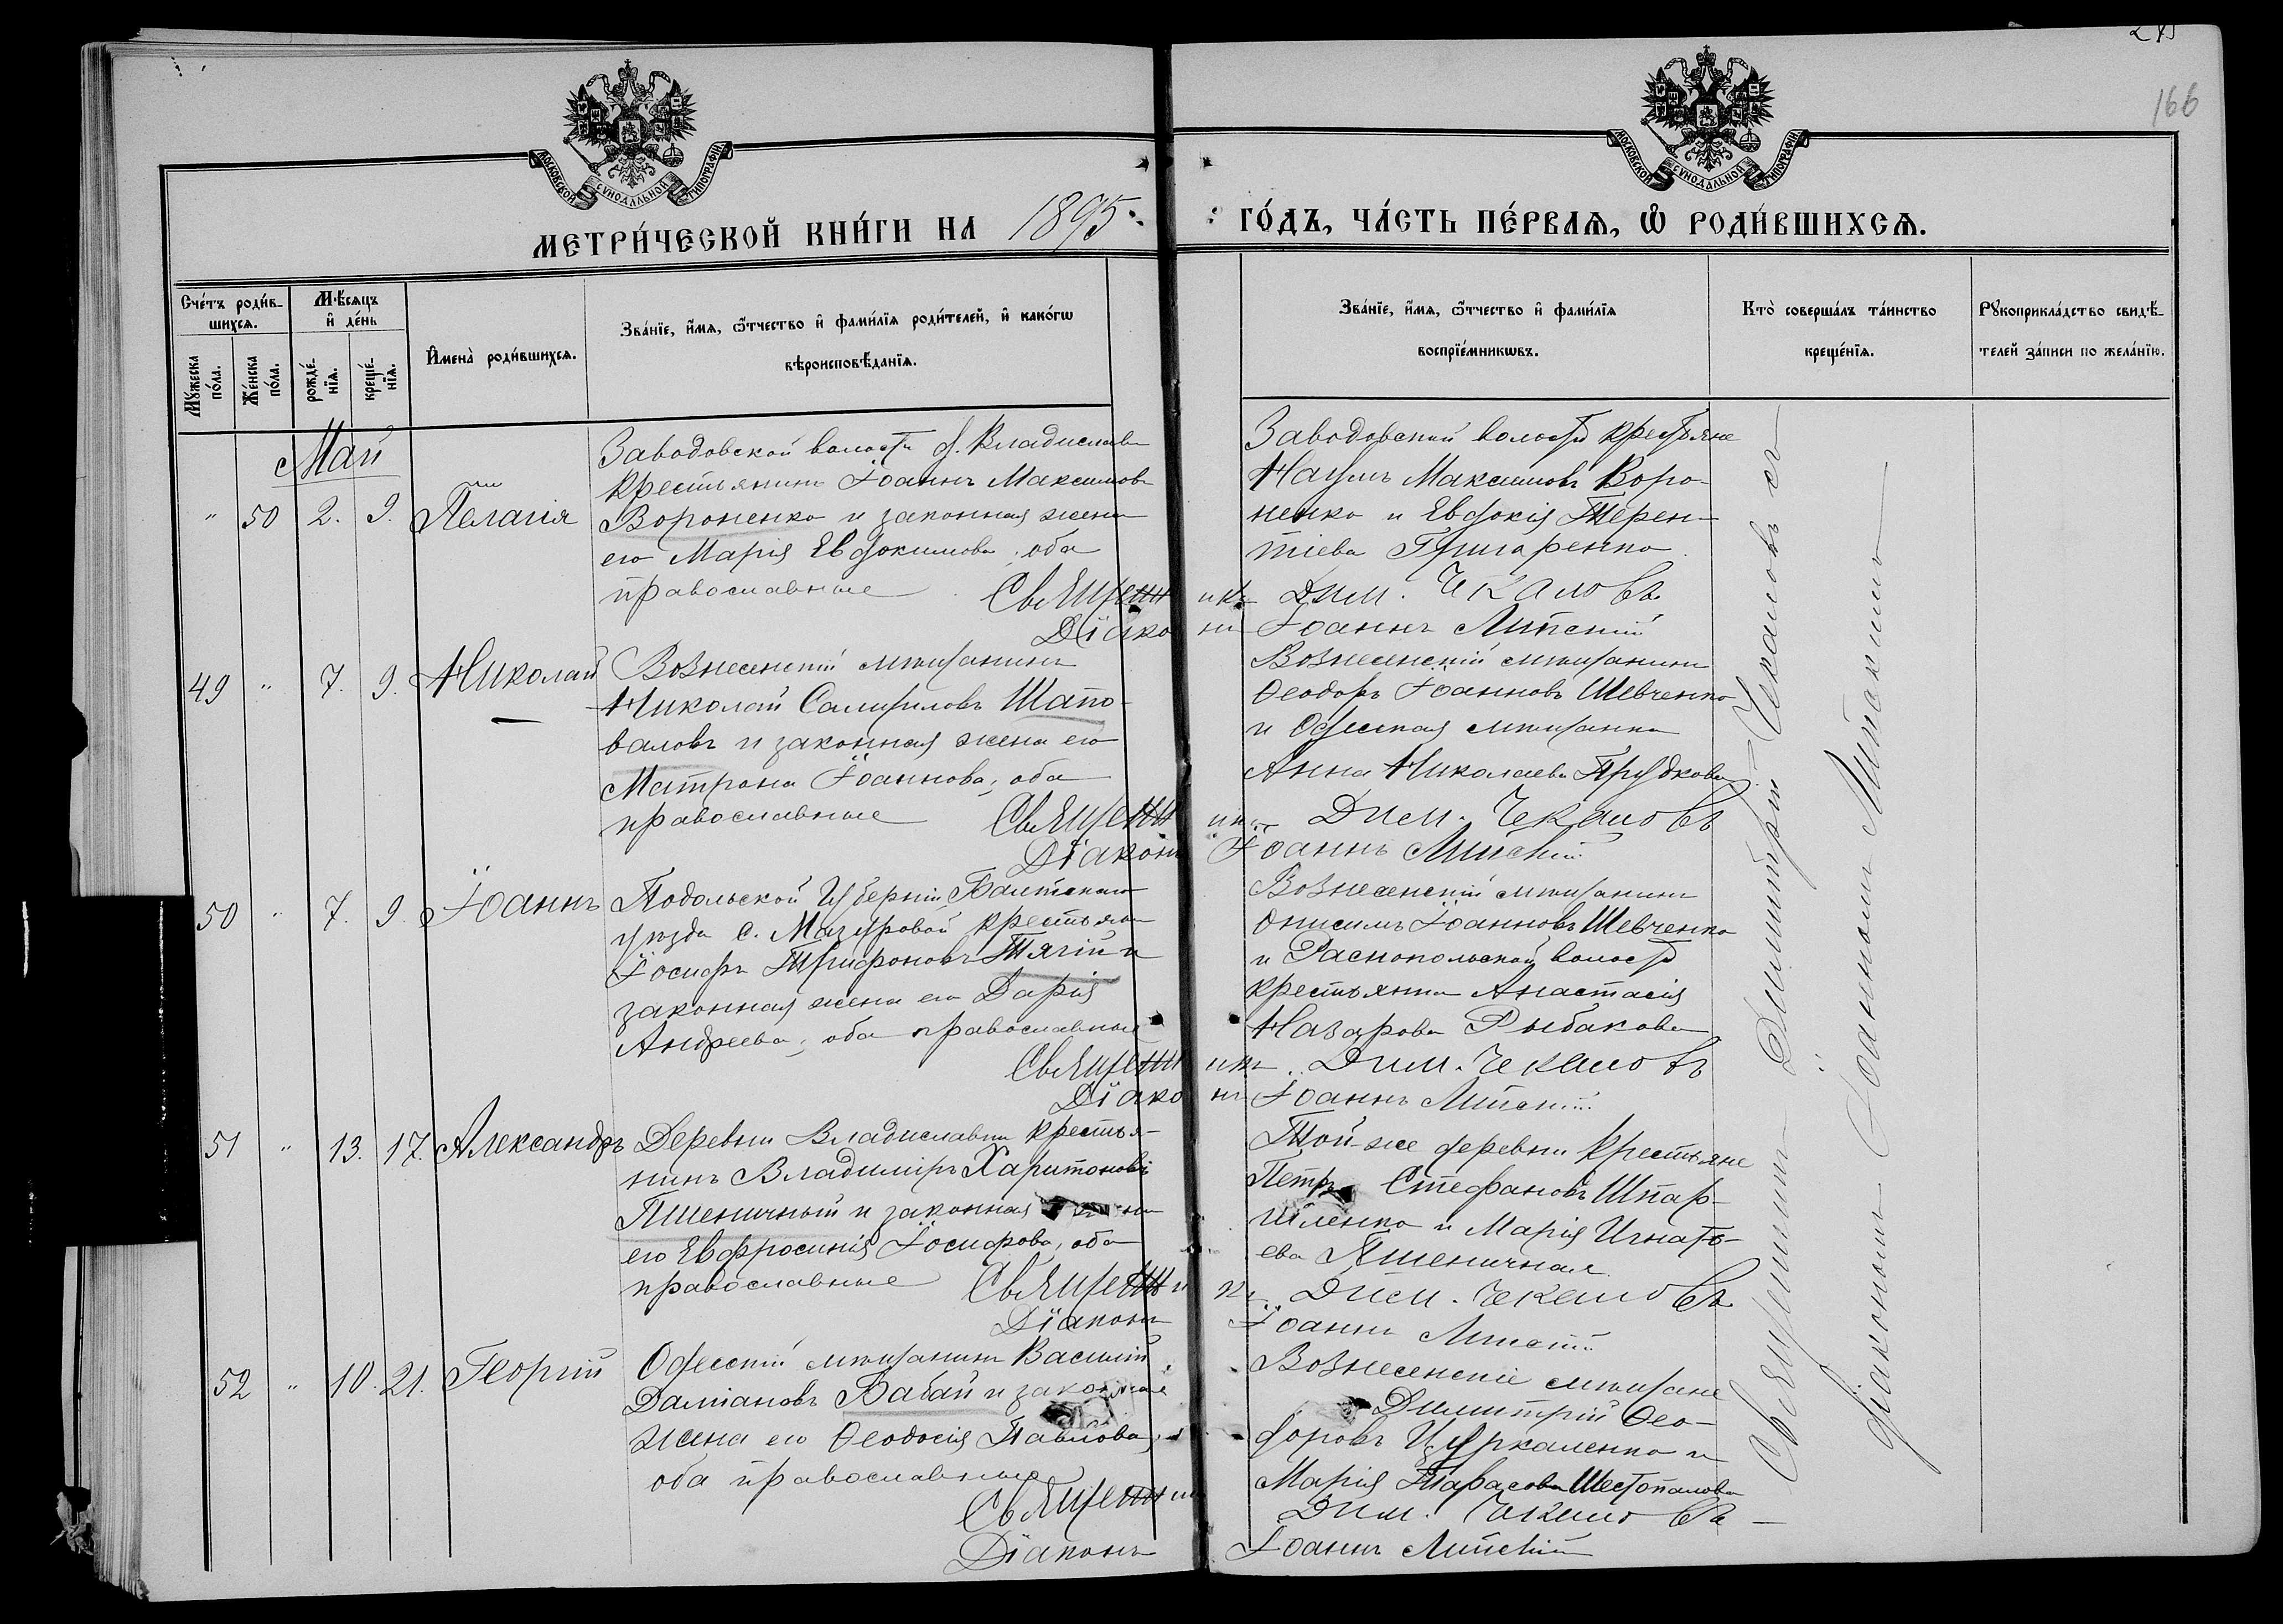 166
МОСКОВСКОЙ СУНОДАЛЬНОЙ ТИПОГРАФІИ
МОСКОВСКОЙ СУНОДАЛЬНОЙ ТИПОГРАФІИ
МЕТРИ́ЧЕСКОЙ КНИ́ГИ НА 1895 ГО́ДЪ, ЧА́СТЬ ПЕ́РВАѦ, Ѿ РОДИ́ВШИХСѦ.
Сче́тъ роди́в-
шихсѧ.
Мꙋ́жеска по́ла.
Же́нска по́ла.
Мѣ́сѧцъ и҆ де́нь
рожде́-нїѧ.
креще́-нїѧ.
И҆мена̀ роди́вшихсѧ.
Зва́нїе, и҆́мѧ, ѻ҆́тчество и҆ фами́лїѧ роди́телей, и҆ како́гѡ
вѣроисповѣ́данїѧ.
Зва́нїе, и҆́мѧ, ѻ҆́тчество и҆ фами́лїѧ
воспрїе́мникѡвъ.
Кто̀ соверша́лъ та́инство
креще́нїѧ.
Рꙋкоприкла́дство свидѣ́-
телей за́писи по жела́нїю.
Май
" 50 2. 9. Пелагія
Заводовской волости д. Владиславки
крестьянинъ Іоаннъ Максимовъ
Вороненко и законная жена
его Марія Евдокимова, оба
православные
Заводовской волости крестьяне
Наумъ Максимовъ Воро-
ненко и Евдокія Терен-
тіева Гринаренко.
Священникъ Дим. Чекаловъ
Діаконъ Іоаннъ Липскій
49 " 7. 9. Николай
Вознесенскій мѣщанинъ
Николай Самуиловъ Шапо-
валовъ и законная жена его
Матрона Іоаннова, оба
православные
Вознесенскій мѣщанинъ
Ѳеодоръ Іоанновъ Шевченко
и Одесская мѣщанка
Анна Николаева Прудкова
Священникъ Дим. Чекаловъ
Діаконъ Іоаннъ Липскій
50 " 7. 9. Іоаннъ
Подольской Губерніи Балтскаго
уѣзда с. Мазуровой крестьянинъ
Іосифъ Трифоновъ Тягій и
законная жена его Дарія
Андреева, оба православные
Вознесенскій мѣщанинъ
Онисимъ Іоанновъ Шевченко
и Распопольской волости
крестьянка Анастасія
Назарова Рыбакова
Священникъ Дим. Чекаловъ
Діаконъ Іоаннъ Липскій
51 " 13. 17. Александръ
Деревни Владиславки крестья-
нинъ Владиміръ Харитоновъ
Пшеничный и законная жена
его Евфросинія Іосифова, оба
православные
Той-же деревни крестьяне
Петръ Стефановъ Шпар-
и Марія Игнать-
ева Пшеничная
Священникъ Дим. Чекаловъ
Діаконъ Іоаннъ Липскій
52 " 10. 21. Георгій
Одесскій мѣщанинъ Василій
Даміановъ Бабай и законная
жена его Ѳеодосія Павлова,
оба православные
Вознесенскіе мѣщане
Димитрій Ѳео-
доровъ Цуркаленко и
Марія Тарасова Шестопалова
Священникъ Дим. Чекаловъ
Діаконъ Іоаннъ Липскій
Священникъ Димитрій Чекаловъ съ
діакономъ Іоанномъ Липскимъ